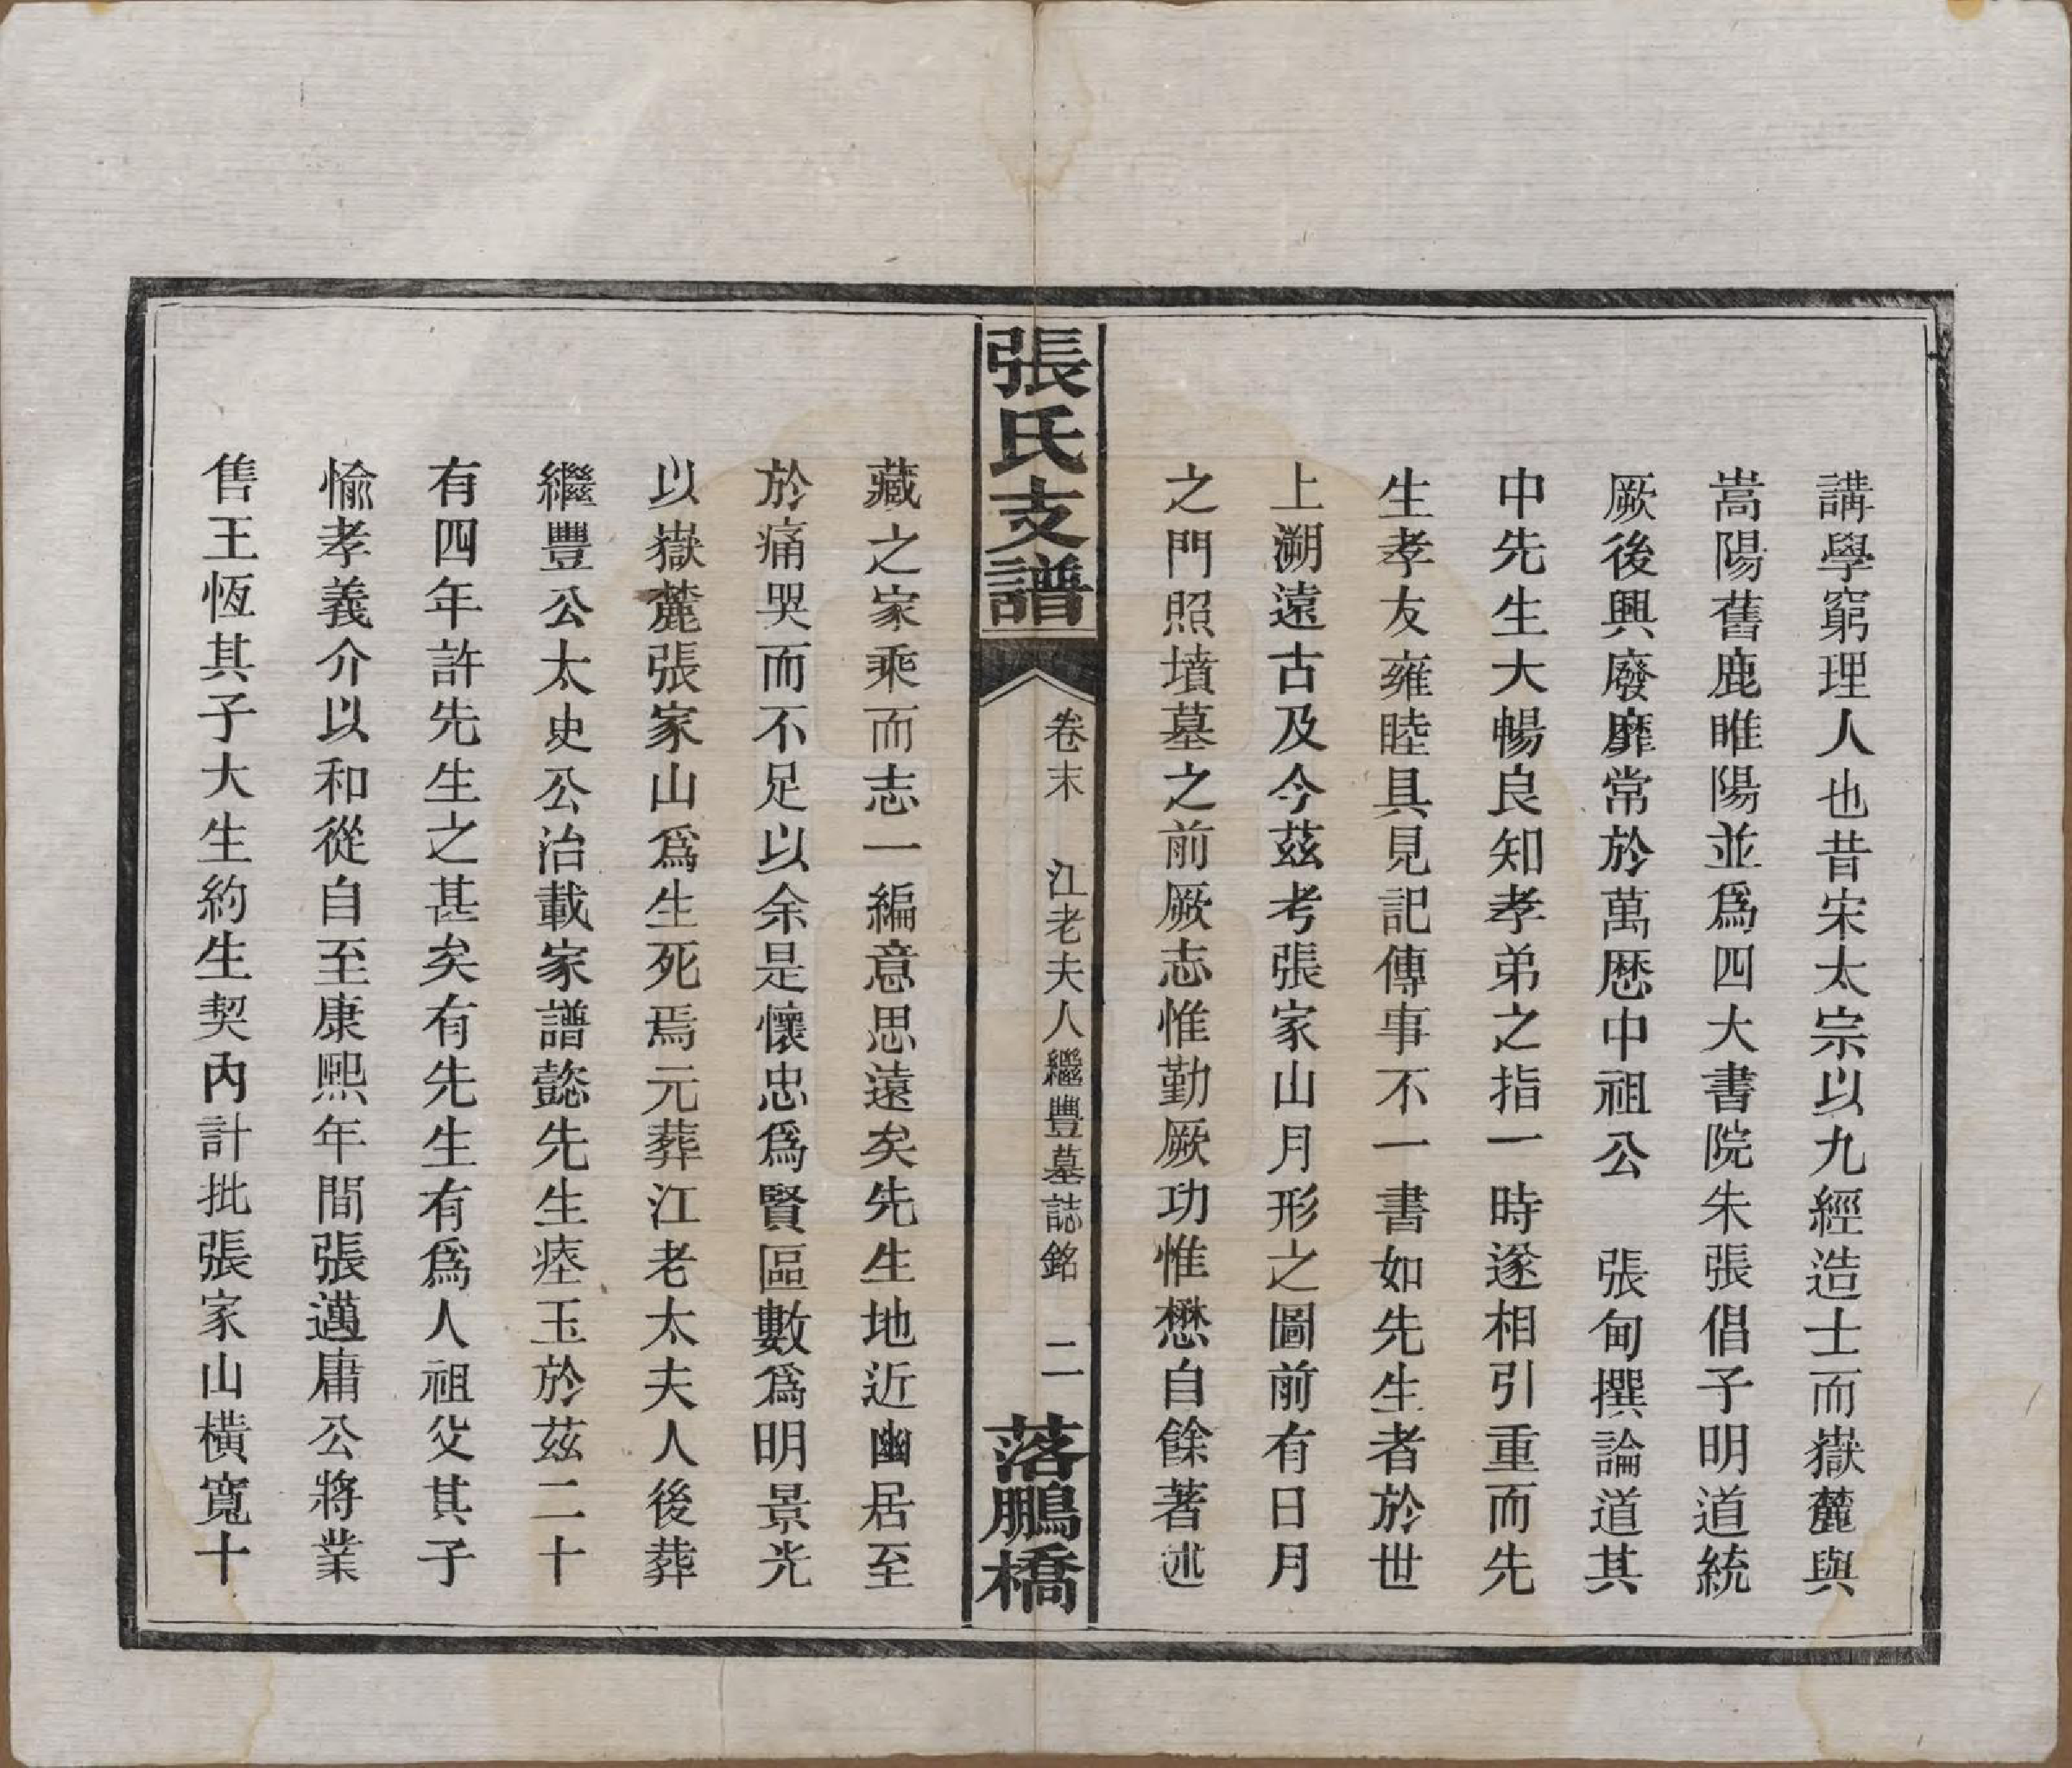 講學窮理人也昔宋太宗以九經造士而嶽麓與
嵩陽舊鹿睢陽並爲四大書院朱張倡子明道統
厥後興廢靡常於萬歷中祖公　張甸撰論道其
中先生大暢良知孝弟之指一時遂相引重而先
生孝友雍睦具見記傳事不一書如先生者於世
上溯遠古及今茲考張家山月形之圖前有日月
之門照墳墓之前厥志惟勤厥功惟懋自餘著述
張氏支譜
卷末　江老夫人繼豐墓誌銘　二
落鵬橋
藏之家乘而志一編意思遠矣先生地近幽居至
於痛哭而不足以余是懷忠爲賢區數爲明景光
以嶽麓張家山爲生死焉元葬江老太夫人後葬
繼豐公太史公治載家譜懿先生瘗玉於茲二十
有四年許先生之甚矣有先生有爲人祖父其子
愉孝義介以和從自至康熙年間張邁庸公將業
售王恆其子大生約生契內計批張家山橫寬十